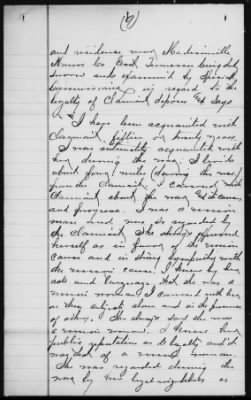 (9)
and residence near Madisonville
Monroe Co East Tennessee being duly
sworn and examined by Special
Commissioner in regard to the
loyalty of Claimant deposes and says
I have been acquainted with
Claimant fifteen or twenty years.
I was intimately acquainted with
her during the war. I lived
about four miles during the war
from Claimant. I conversed with
Claimant about the war, its causes
and progress. I was a union
man and was so regarded by
the Claimant. She always expressed
herself as in favor of the union
cause and in strong sympathy with
the union cause. I knew by her
acts and language that she was a
union woman. I conversed with her
on this subject alone and in the presence
of others. She always said she was
a union woman. I knew her
public reputation as to loyalty and it
was that of a union woman.
She was regarded during the
war by her loyal neighbors as